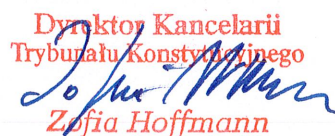 Dyrektor Kancelarii
Trybunału Konstytucyjnego
Zofia Hoffmann